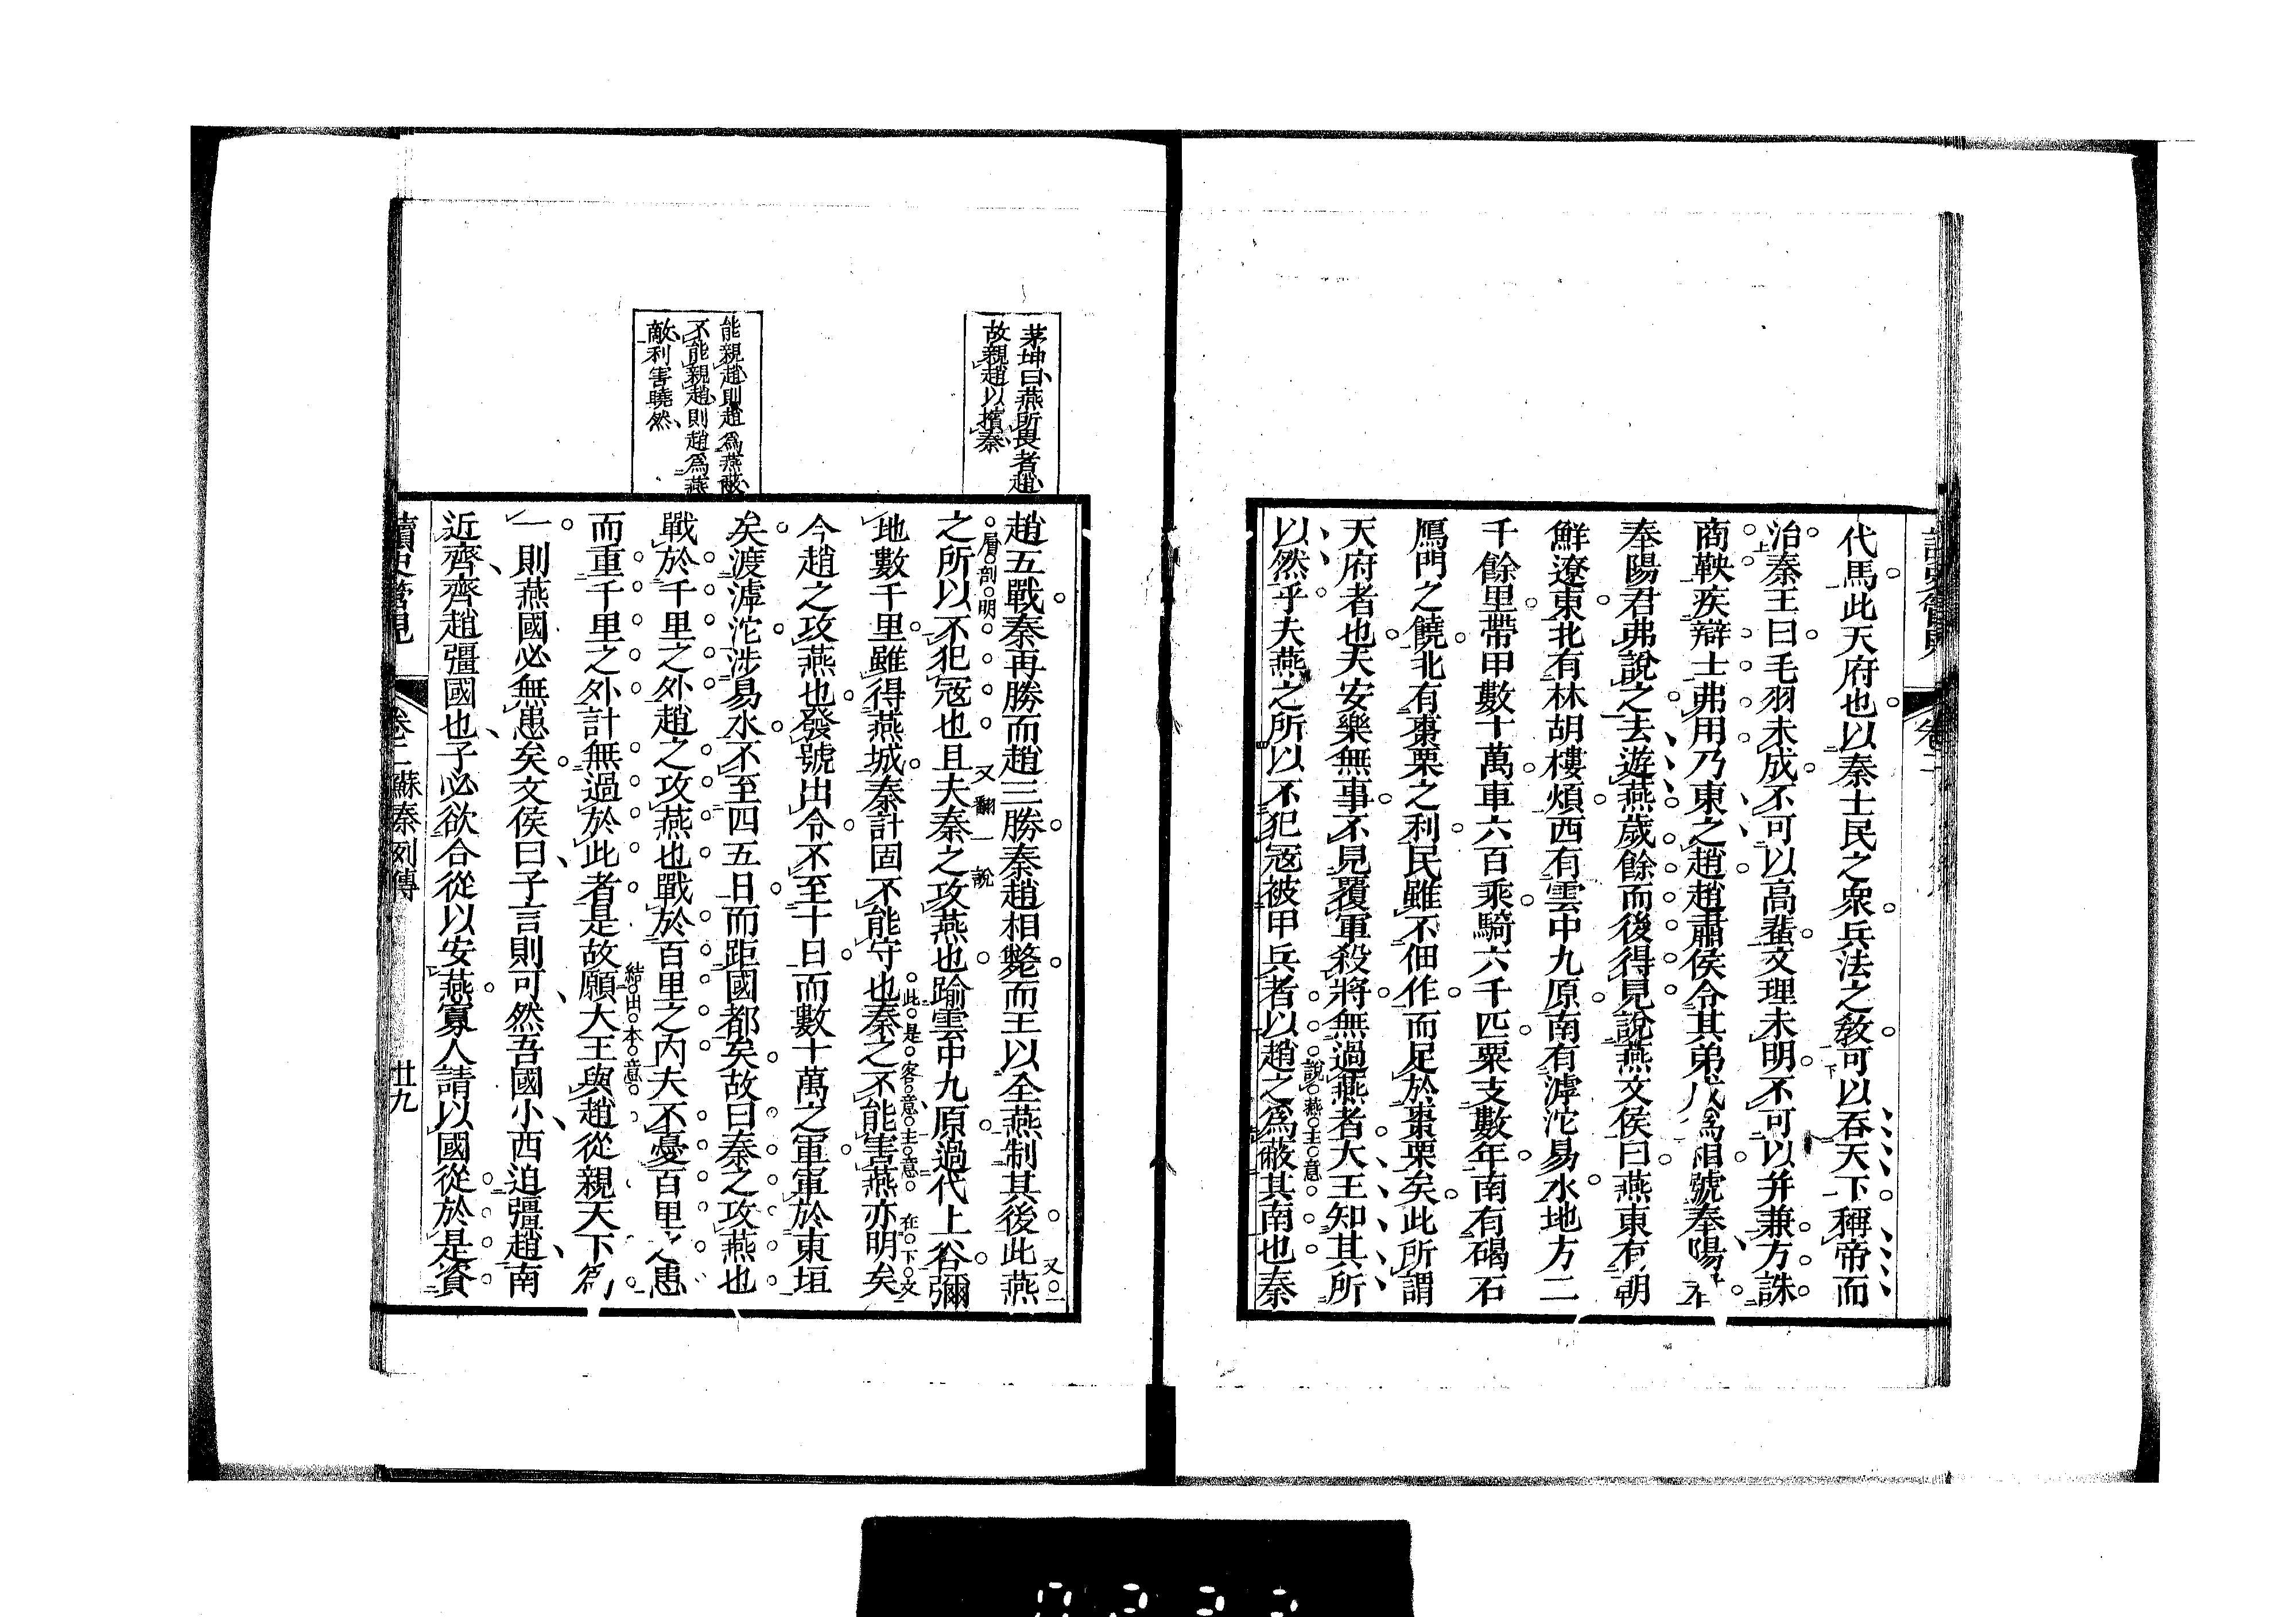 代馬此天府也以秦士民之衆兵法之敎可以吞天下稱帝而
治秦王曰毛羽未成不可以高蜚文理未明不可以并兼方誅
商鞅疾辯士弗用乃東之趙趙肅侯令其弟成爲相號奉陽君
奉陽君弗說之去遊燕歲餘而後得見說燕文侯曰燕東有朝
鮮遼東北有林胡樓煩西有雲中九原南有滹沱易水地方二
千餘里帶甲數十萬車六百乘騎六千匹粟支數年南有碣石
鴈門之饒北有棗栗之利民雖不佃作而足於棗栗矣此所謂
天府者也夫安樂無事不見覆軍殺將無過燕者大王知其所
說燕主意
以然乎夫燕之所以不犯寇被甲兵者以趙之爲蔽其南也秦
茅坤曰燕所畏者趙
故親趙以擯秦
趙五戰秦再勝而趙三勝秦趙相斃而王以全燕制其後此燕
又一
層剖明
之所以不犯寇也且夫秦之攻燕也踰雲中九原過代上谷彌
又翻一說
地數千里雖得燕城秦計固不能守也秦之不能害燕亦明矣
此是客意主意在下文
今趙之攻燕也發號出令不至十日而數十萬之軍軍於東垣
能親趙則趙爲燕蔽
不能親趙則趙爲燕
敵利害曉然
矣渡滹沱涉易水不至四五日而距國都矣故曰秦之攻燕也
戰於千里之外趙之攻燕也戰於百里之內夫不憂百里之患
結出本意
而重千里之外計無過於此者是故願大王與趙從親天下爲
一則燕國必無患矣文侯曰子言則可然吾國小西迫彊趙南
近齊齊趙彊國也子必欲合從以安燕寡人請以國從於是資
讀史管見
卷二蘇秦列傳
廿九